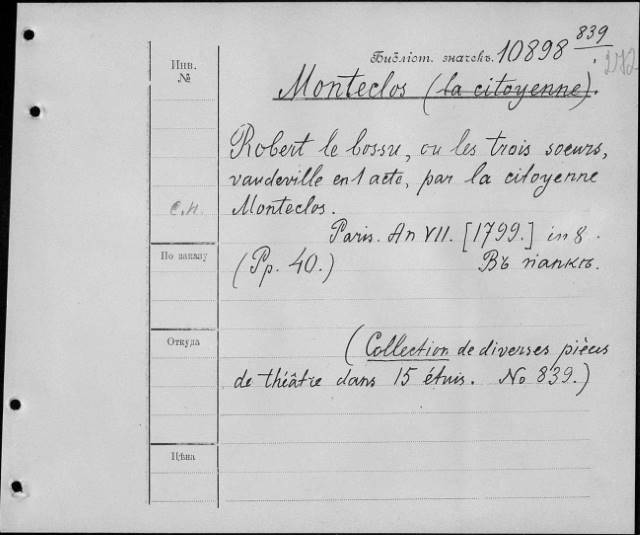 839
Библіот. значекъ. 10898
Инв.
№
Monteclos (la citoyenne).
Robert le bossu, ou les trois soeurs,
vaudeville en 1 acte, par la citoyenne
Monteclos.
С.К.
Paris. An VII. [1799.] in 8.
По заказу
(Pp. 40.) Въ папкѣ.
Откуда
(Collection de diverses pièces
de théâtre dans 15 étuis. No 839.)
Цѣна